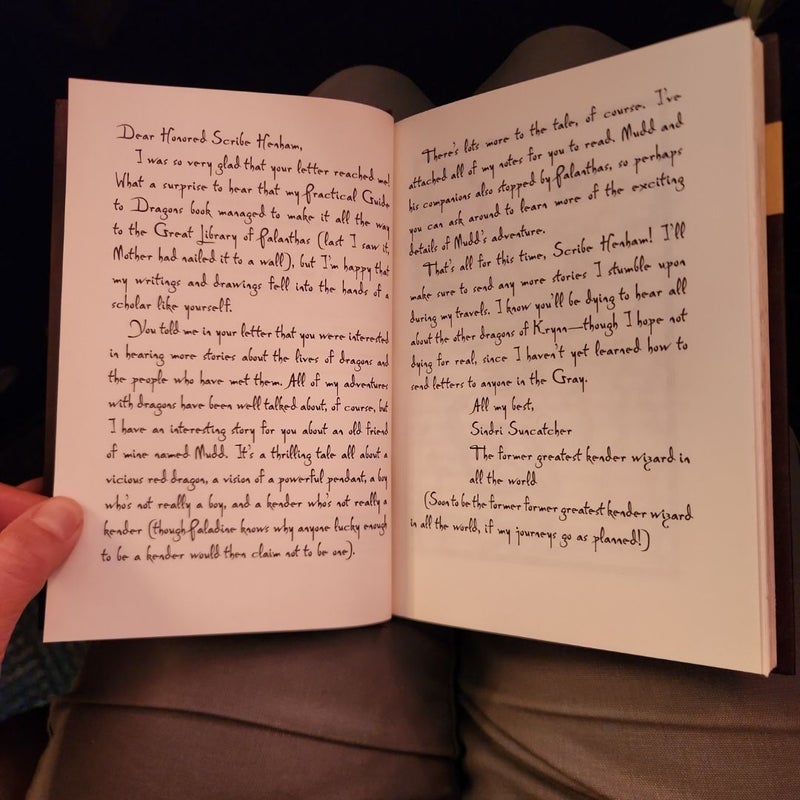 Dear Honored Scribe Henham,
I was so very glad that your letter reached me!
What a surprise to hear that my Practical Guide
to Dragons book managed to make it all the way
to the Great Library of Palanthas (last I saw it,
Mother had nailed it to a wall), but I'm happy that
my writings and drawings fell into the hands of a
scholar like yourself.
You told me in your letter that you were interested
in hearing more stories about the lives of dragons and
the people who have met them. All of my adventures
with dragons have been well talked about, of course, but
I have an interesting story for you about an old friend
of mine named Mudd. It's a thrilling tale all about a
vicious red dragon, a vision of a powerful pendant, a boy
who's not really a boy, and a kender who's not really a
kender (though Paladine knows why anyone lucky enough
to be a kender would then claim not to be one).
There's lots more to the tale, of course. I've
attached all of my notes for you to read. Mudd and
his companions also stopped by Palanthas, so perhaps
you can ask around to learn more of the exciting
details of Mudd's adventure.
That's all for this time, Scribe Henham! I'll
make sure to send any more stories I stumble upon
during my travels. I know you'll be dying to hear all
about the other dragons of Krynn—though I hope not
dying for real, since I haven't yet learned how to
send letters to anyone in the Gray.
All my best,
Sindri Suncatcher
The former greatest kender wizard in
all the world
(Soon to be the former former greatest kender wizard
in all the world, if my journeys go as planned!)